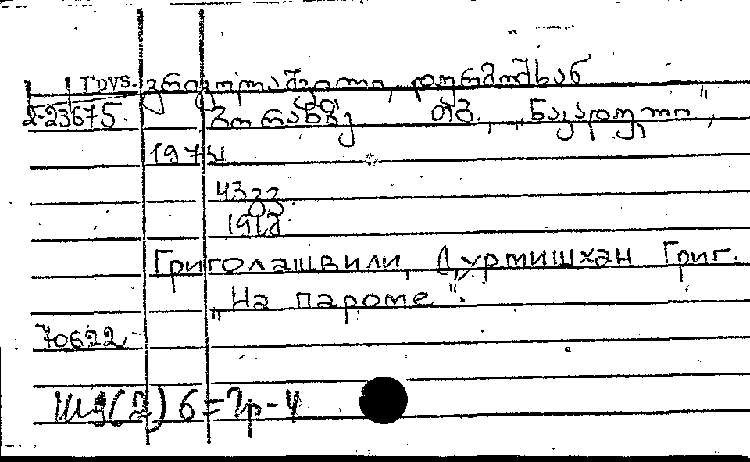 TDVS. გრიგოლაშვილი, დურმიშხან
2-23675. ბორანზე თბ., „ნაკადული",
1974
43 გვ
Григолашвили, Дурмишхан Григ.
„На пароме".
70622